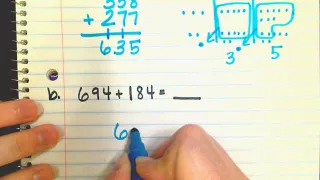 358
+ 277
635
3 5
b. 694 + 184 = ___
6